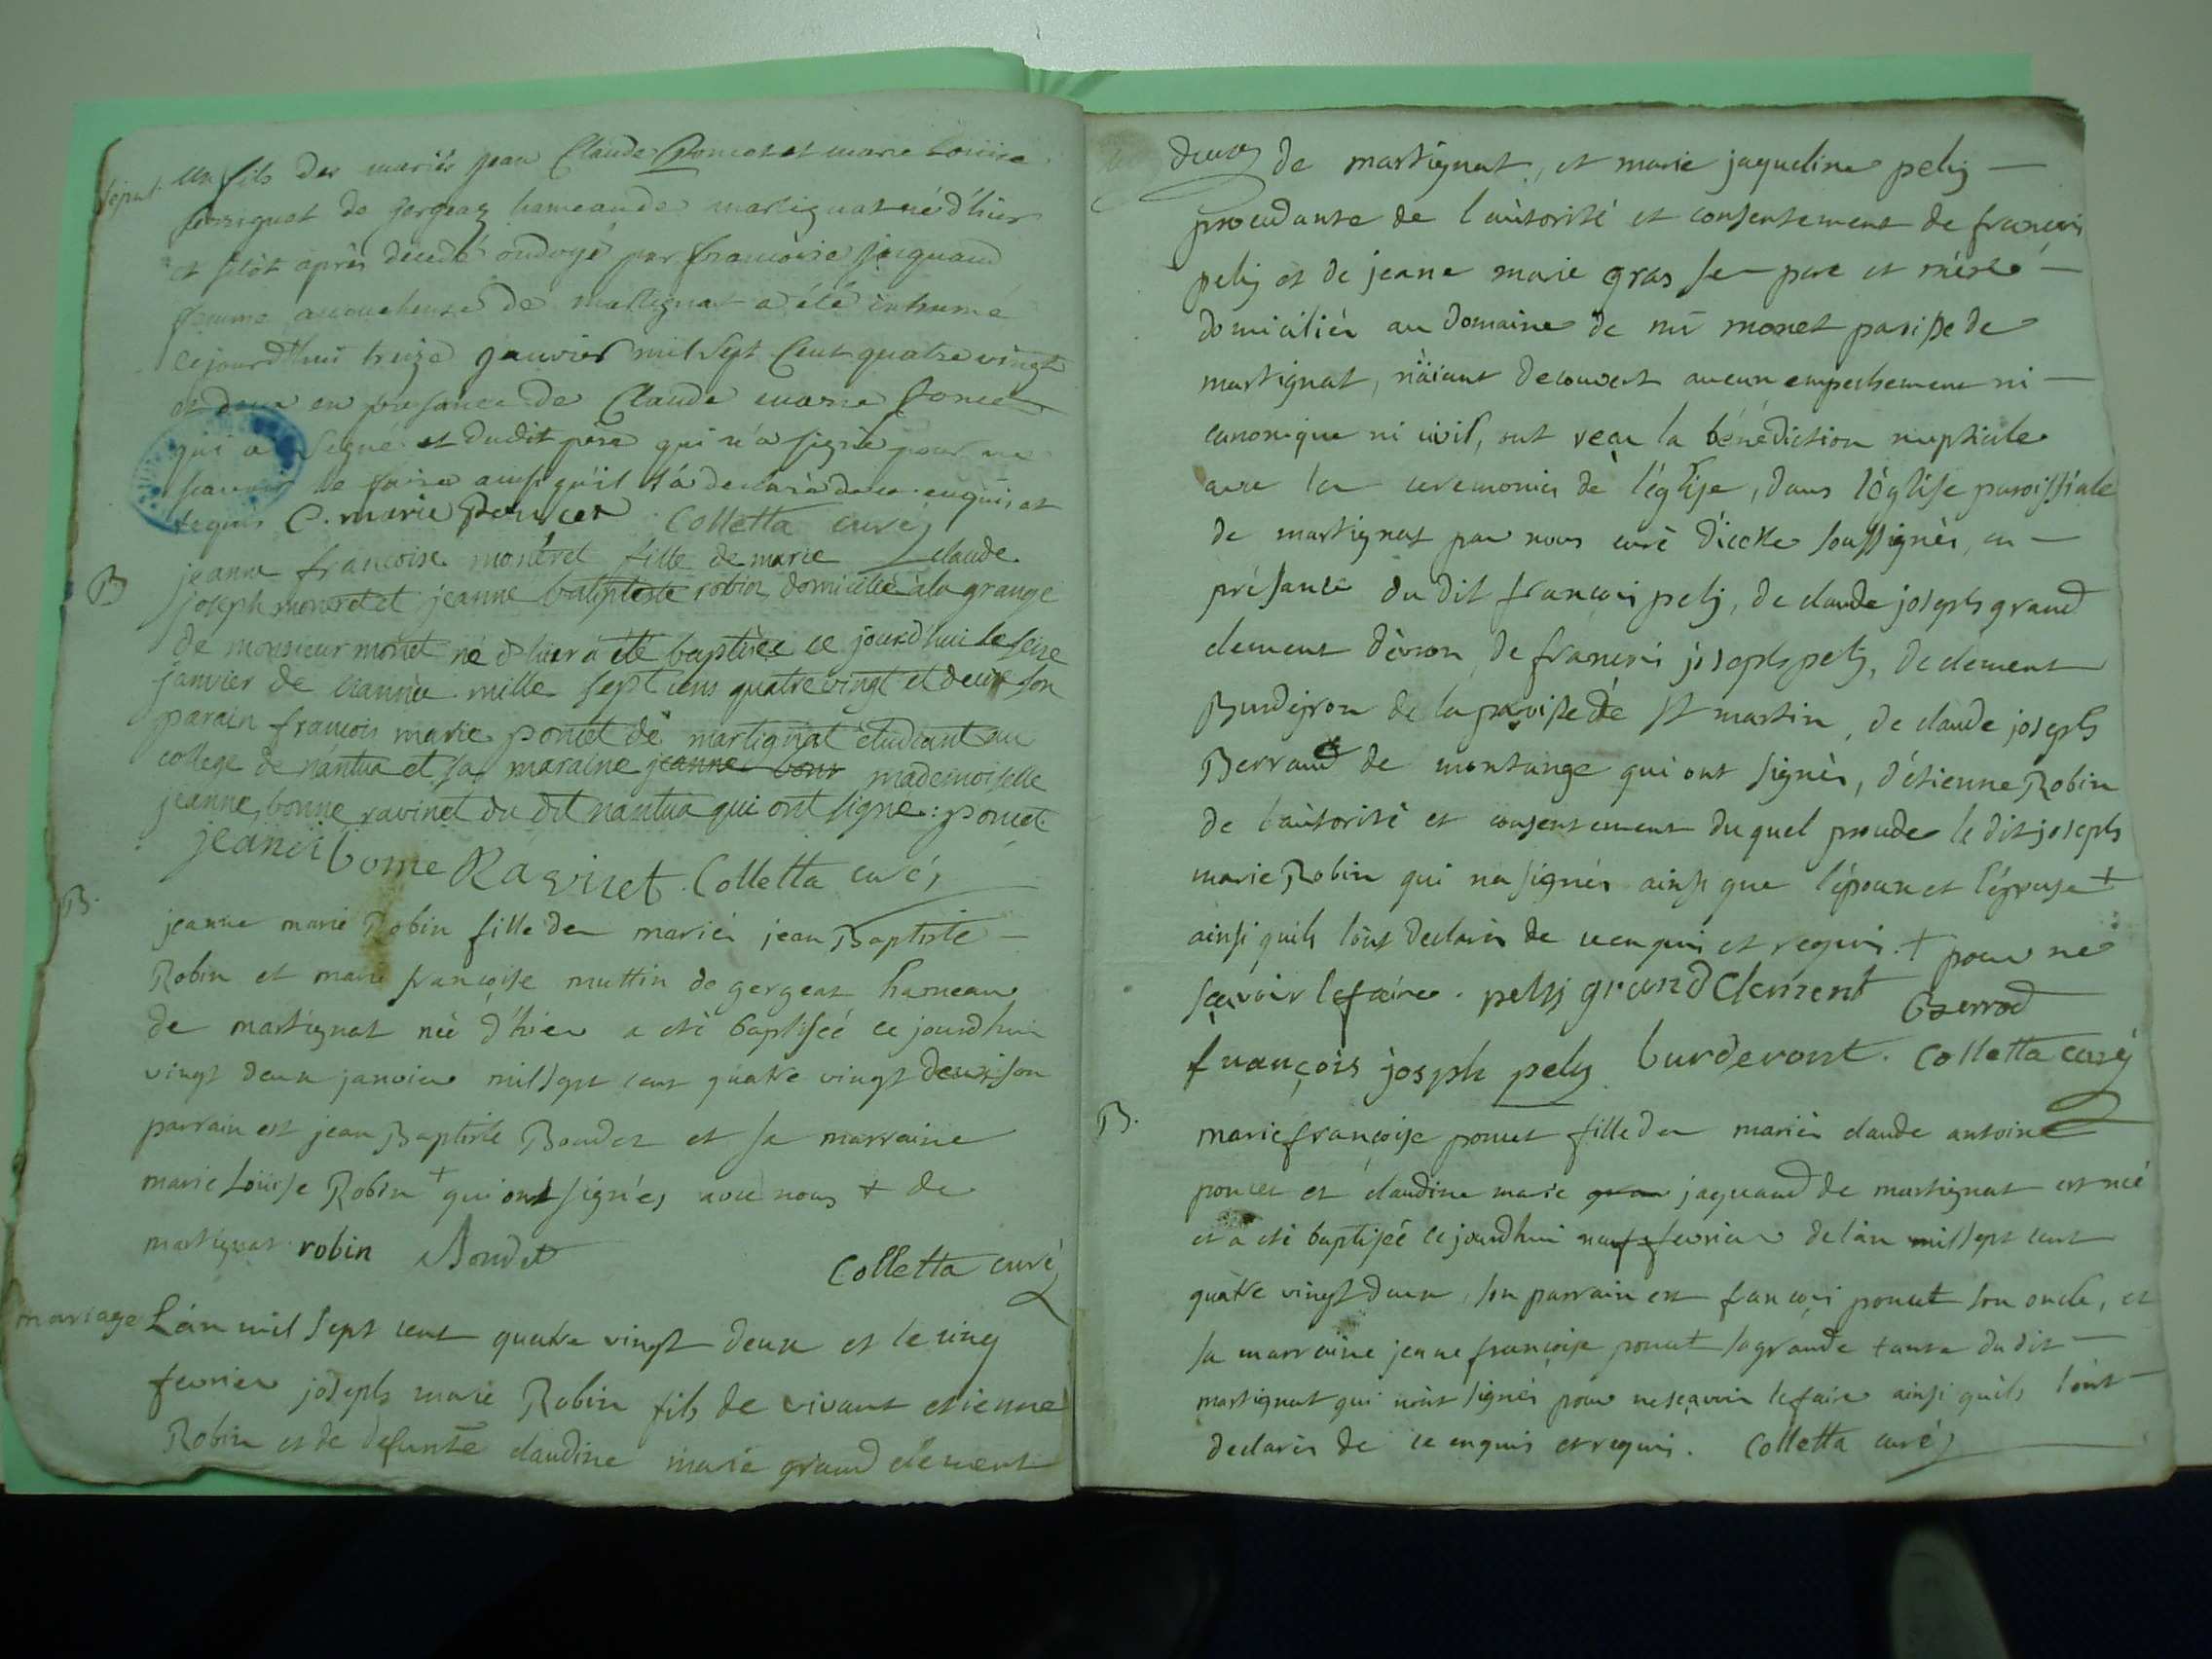 Sepul.
un fils des mariés jean Claude Poncet et marie Louise
de gergeas hameau de martignat né d'hier
et sitôt après décédé ondoyé par francoise jaquand
femme accoucheuse de martignat a été inhumé
cejourd'hui treize janvier mil sept cent quatre vingt
et deux en presance de Claude marie Poncet
qui a signé et dudit père qui n'a signé pour ne
scavoir le faire ainsi qu'il l'a declaré de ce enquis et
requis C. marie Poncet Colletta curé
B
jeanne francoise moneret fille de marie claude
joseph moneret et jeanne batipteste robin domicilié à la grange
de monsieur monet né d'hier a été baptisée ce jourd'hui le seize
janvier de l'année mille sept cens quatre vingt et deux son
parain françois marie poncet de martignat etudiant au
college de nantua et sa maraine jeanne bonr mademoiselle
jeanne bonne ravinet du dit nantua qui ont signe : poncet
jeane bonne Ravinet Colletta curé,
B.
jeanne marie Robin fille des mariés jean Baptiste —
Robin et marie françoise muttin de gergeas hameau
de martignat née d'hier a été baptisée ce jourdhui
vingt deux janvier mil sept cent quatre vingt deux son
parrain est jean Baptiste Boudet et sa marraine
marie Loüise Robin + qui ont signés avec nous + de
martignat robin Boudet
Colletta curé
mariage
L'àn mil sept cent quatre vingt deux et le cinq
fevrier joseph marie Robin fils de vivant etienne
Robin et de defunte claudine marie grand clement
deux de martignat, et marie jaqueline pely —
procedante de l'autorité et consentement de francois
pely et de jeane marie gras ses pere et mère —
domiciliés au domaine de mr monet paroisse de
martignat, n'aiant decouvert aucun empechement ni —
canonique ni civil, ont recu la bénédiction nuptiale
avec les ceremonies de l'église, dans l'église paroissiale
de martignat par nous curé d'icelle soussignés, en —
présance du dit françois pely, de claude joseph grand
clement d'oison, de francois joseph pely, de clement
Burdeyron de la paroisse de St martin, de claude joseph
Berraud de montange qui ont signés, d'étienne Robin
de l'autorité et consentement du quel procede le dit joseph
marie Robin qui n'a signés ainsi que l'époux et l'épouse +
ainsi quils l'ont declarés de ce enquis et requis. + pour ne
sçavoir le faire. pely grand Clement Berrod
françois joseph pely burderont. Colletta curé
B.
marie françoise poncet fille des mariés claude antoine
poncet et claudine marie gras jaquand de martignat est née
et a été baptisée ce jourdhui neuf fevrier de l'an mil sept cent
quatre vingt deux, son parrain est francois poncet son oncle, et
sa marraine jeane françoise poncet sa grande tante du dit —
martignat qui n'ont signés pour ne sçavoir le faire ainsi quils l'ont
declarés de ce enquis et requis. Colletta curé